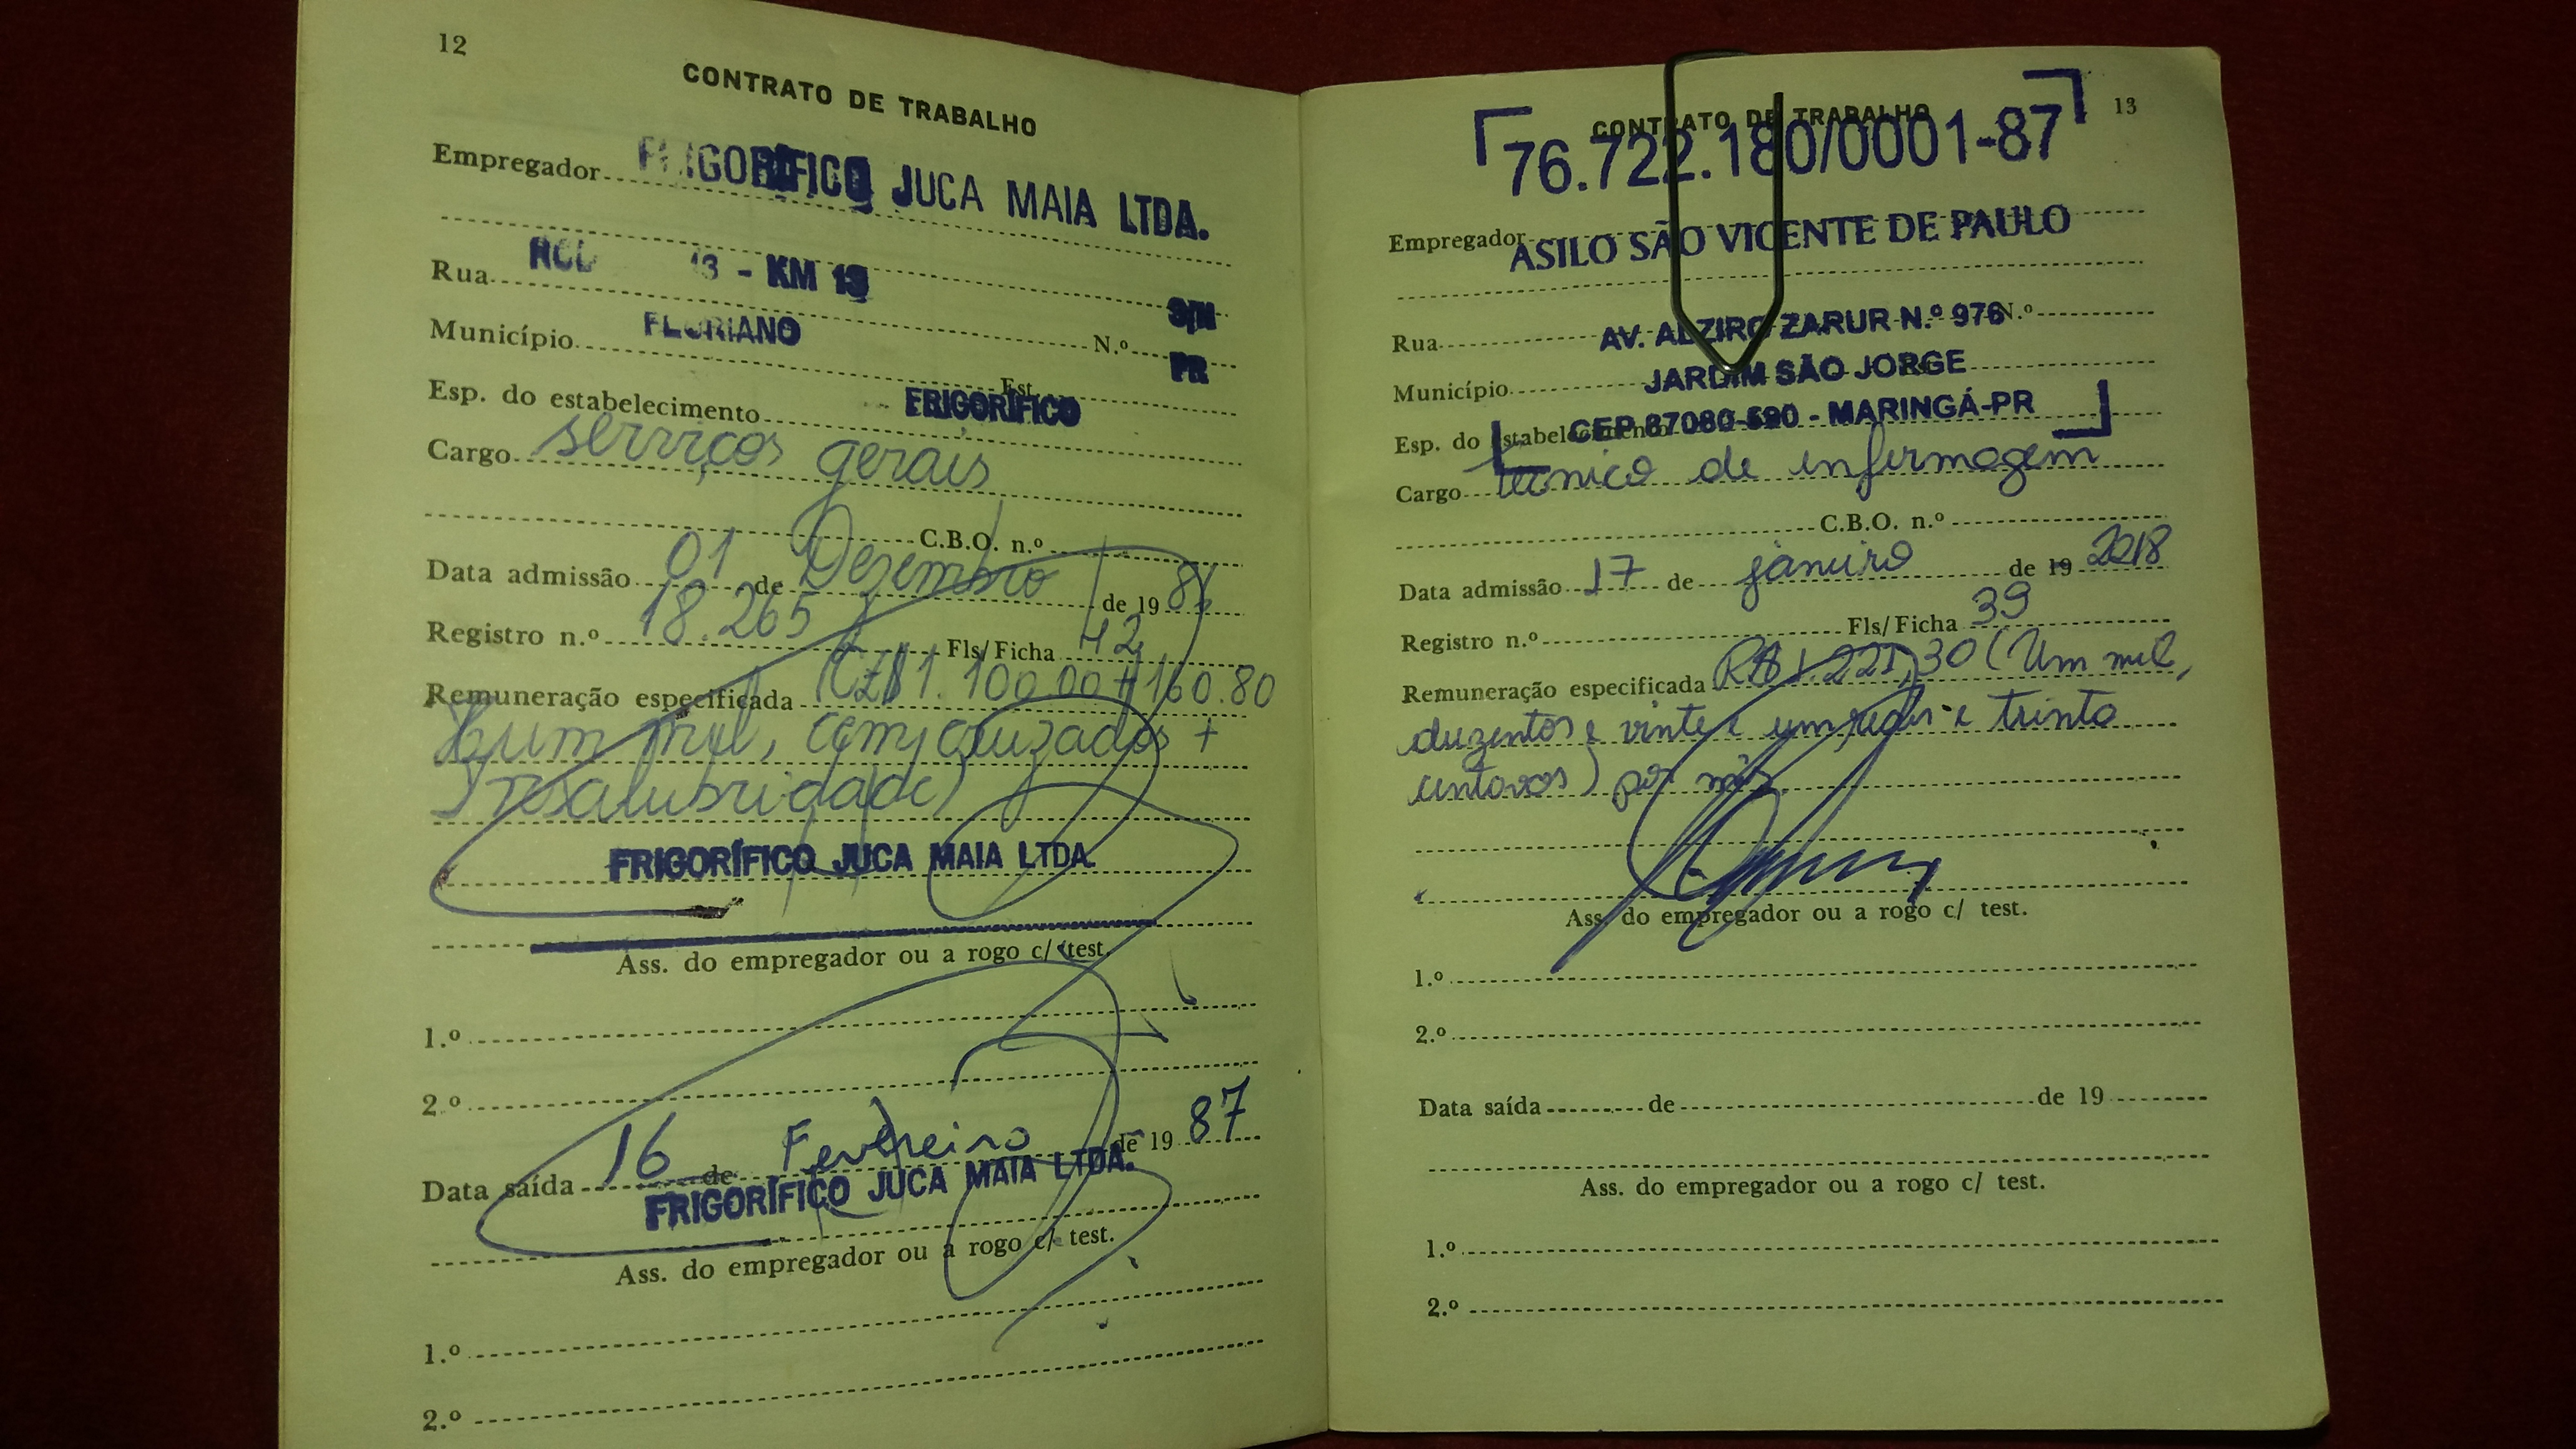 12
CONTRATO DE TRABALHO
Empregador FRIGORÍFICO JUCA MAIA LTDA.
Rua ROD 13 - KM 19
N.º S/N
Município FLORIANO
Est. PR
Esp. do estabelecimento FRIGORÍFICO
Cargo serviços gerais
C.B.O. n.º
Data admissão 01 de Dezembro de 19 86
Registro n.º 18.265 Fls/Ficha 42
Remuneração especificada CZ$ 1.100.00 + 160.80
Hum mil, cem cruzados +
Insalubridade)
FRIGORÍFICO JUCA MAIA LTDA.
Ass. do empregador ou a rogo c/ test.
1.º
2.º
Data saída 16 de Fevereiro de 19 87
FRIGORÍFICO JUCA MAIA LTDA.
Ass. do empregador ou a rogo c/ test.
1.º
2.º
13
CONTRATO DE TRABALHO
76.722.180/0001-87
Empregador ASILO SÃO VICENTE DE PAULO
Rua AV. ALZIRO ZARUR N.º 976 N.º
Município JARDIM SÃO JORGE
Esp. do estabelecimento CEP 87080-590 - MARINGÁ-PR
Cargo técnico de enfermagem
C.B.O. n.º
Data admissão 17 de janeiro de 19 2018
Registro n.º Fls/Ficha 39
Remuneração especificada R$ 1.221,30 (Um mil,
duzentos e vinte e um reais e trinta
centavos) por mês
Ass. do empregador ou a rogo c/ test.
1.º
2.º
Data saída de de 19
Ass. do empregador ou a rogo c/ test.
1.º
2.º